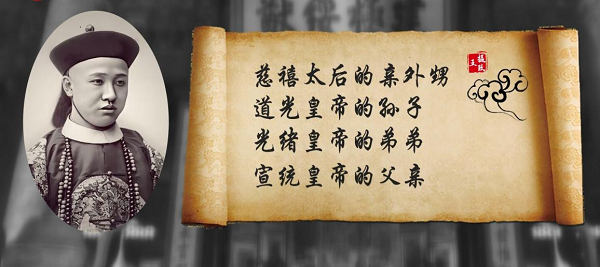 慈禧太后的亲外甥
道光皇帝的孙子
光绪皇帝的弟弟
宣统皇帝的父亲